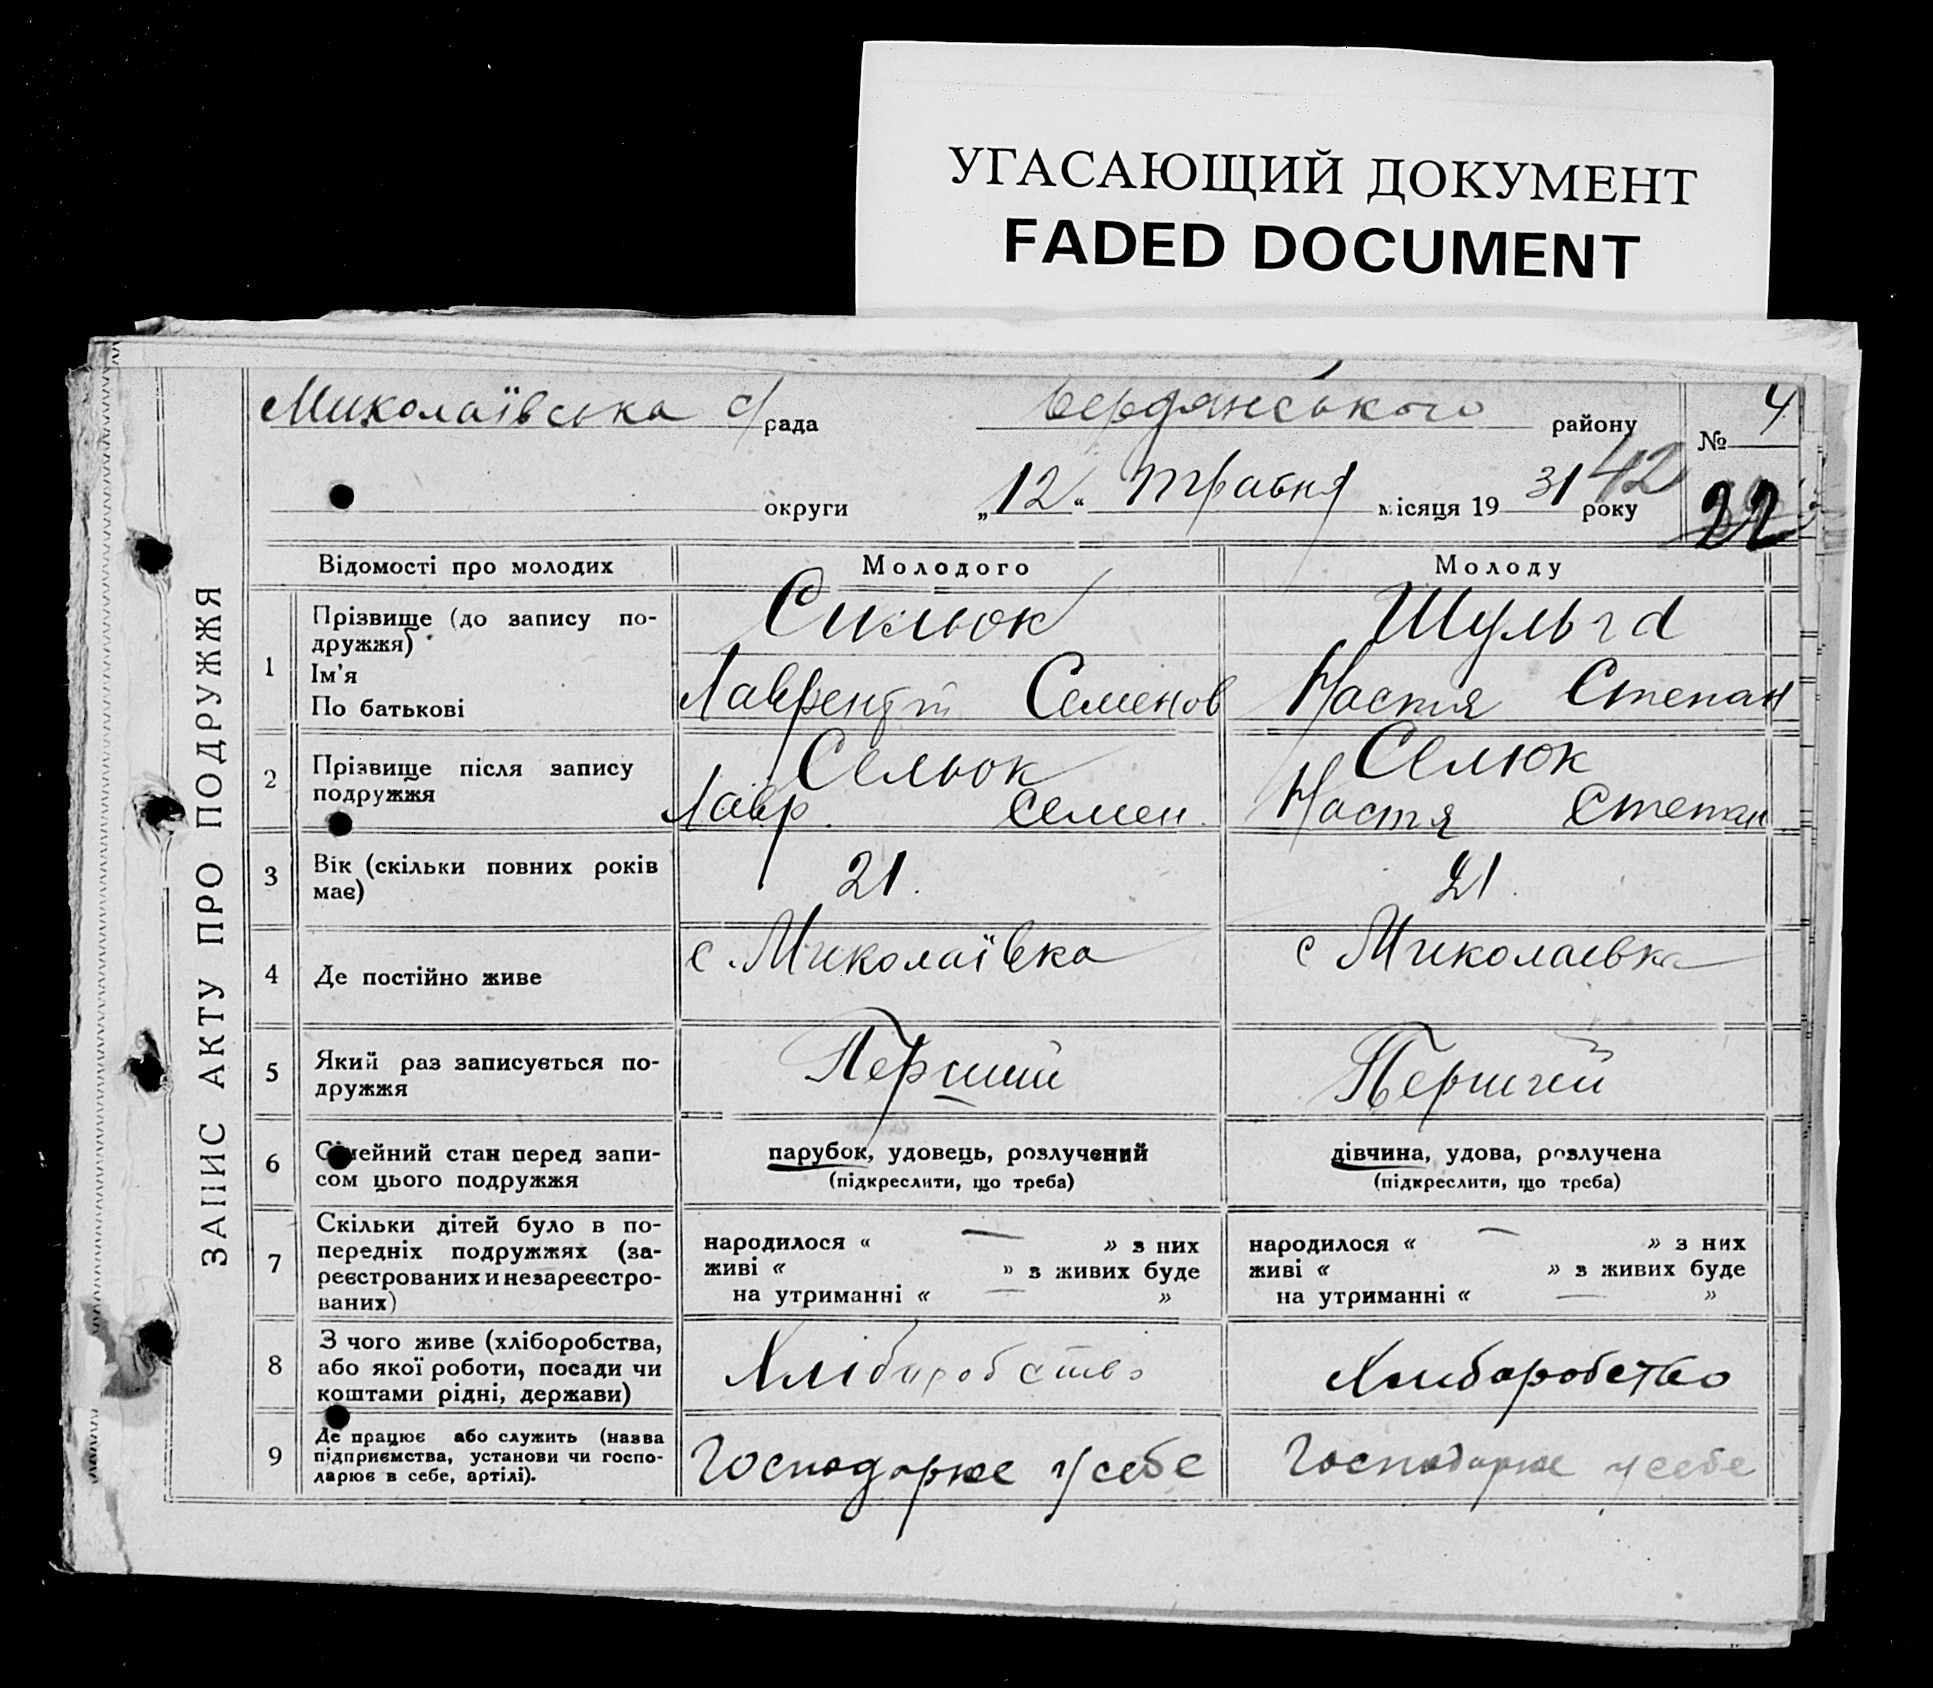 УГАСАЮЩИЙ ДОКУМЕНТ
FADED DOCUMENT
ЗАПИС АКТУ ПРО ПОДРУЖЖЯ
Миколаївська с/рада Бердянського району № 4
округи „12“ травня місяця 1931 року 42 22
Відомості про молодих Молодого Молоду
1 Прізвище (до запису по-
дружжя) Сильюк Шульга
Ім'я
По батькові Лаврентій Семенов Настя Степан
2 Прізвище після запису
подружжя Сельюк Селюк
Лавр. Семен. Настя Степан
3 Вік (скільки повних років
має) 21. 21.
4 Де постійно живе с. Миколаївка с Миколаевка
5 Який раз записується по-
дружжя Перший Перший
6 Сімейний стан перед запи-
сом цього подружжя парубок, удовець, розлучений дівчина, удова, розлучена
(підкреслити, що треба) (підкреслити, що треба)
7 Скільки дітей було в по-
передніх подружжях (за-
реєстрованих и незареєстро-
ваних)
народилося « — » з них народилося « — » з них
живі « » з живих буде живі « » з живих буде
на утриманні « — » на утриманні « — »
8 З чого живе (хліборобства,
або якої роботи, посади чи
коштами рідні, держави) Хліборобство Хлиборобство
9 Де працює або служить (назва
підприємства, установи чи госпо-
дарює в себе, артілі). Господарює у себе Господарює у себе